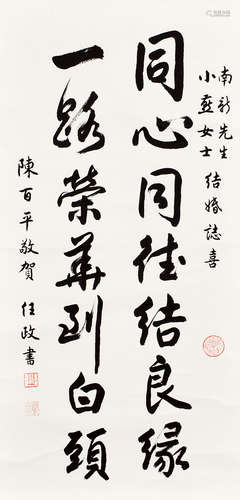 南新先生
小燕女士 结婚誌喜
同心同德结良缘
一路榮華到白頭
陳百平敬賀 任政書